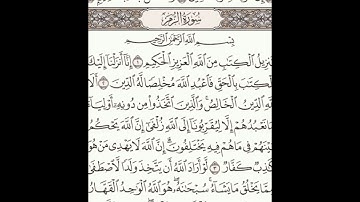 سُورَةُ الزُّمَرِ
بِسْمِ اللَّهِ الرَّحْمَٰنِ الرَّحِيمِ
تَنزِيلُ الْكِتَابِ مِنَ اللَّهِ الْعَزِيزِ الْحَكِيمِ ١ إِنَّا أَنزَلْنَا إِلَيْكَ
الْكِتَابَ بِالْحَقِّ فَاعْبُدِ اللَّهَ مُخْلِصًا لَّهُ الدِّينَ ٢ أَلَا
لِلَّهِ الدِّينُ الْخَالِصُ وَالَّذِينَ اتَّخَذُوا مِن دُونِهِ أَوْلِيَاءَ
مَا نَعْبُدُهُمْ إِلَّا لِيُقَرِّبُونَا إِلَى اللَّهِ زُلْفَىٰ إِنَّ اللَّهَ يَحْكُمُ
بَيْنَهُمْ فِي مَا هُمْ فِيهِ يَخْتَلِفُونَ إِنَّ اللَّهَ لَا يَهْدِي مَنْ هُوَ
كَاذِبٌ كَفَّارٌ ٣ لَّوْ أَرَادَ اللَّهُ أَن يَتَّخِذَ وَلَدًا لَّاصْطَفَىٰ
مِمَّا يَخْلُقُ مَا يَشَاءُ سُبْحَانَهُ هُوَ اللَّهُ الْوَاحِدُ الْقَهَّارُ